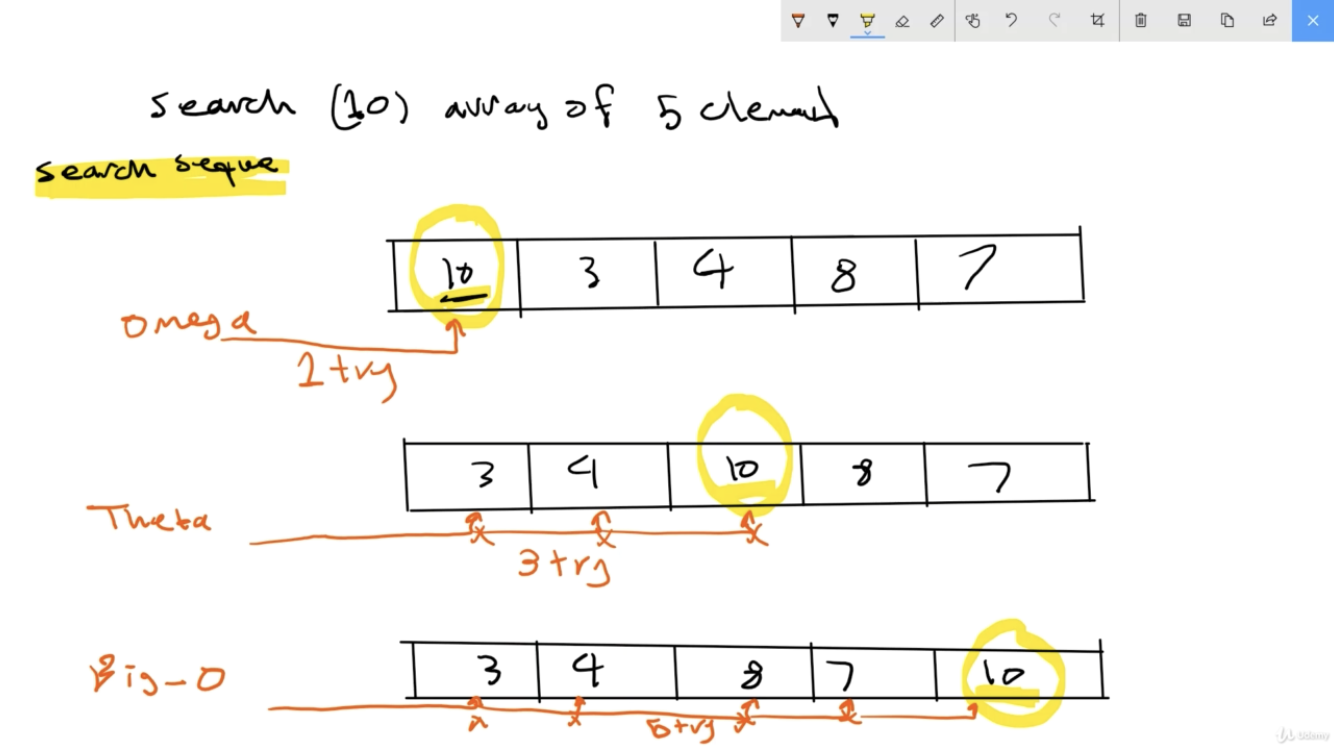 search (10) array of 5 element
search seque
10 3 4 8 7
Omega
1 try
3 4 10 8 7
Theta
3 try
Big-O
3 4 8 7 10
5 try
Udemy